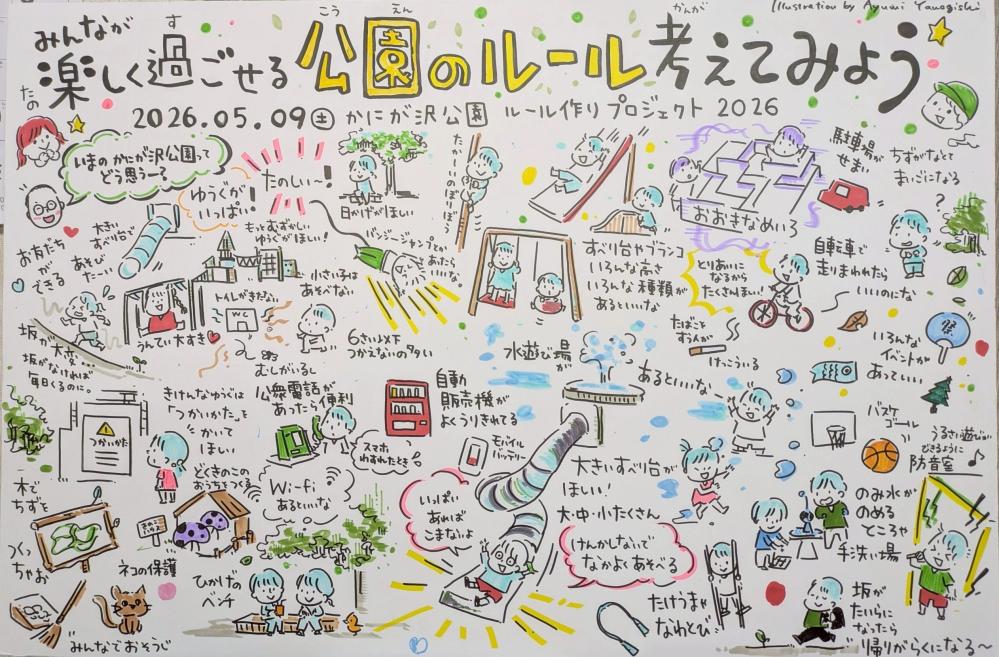 Illustration by Ayumi Yamagishi
みんなが
楽しく過ごせる公園のルール考えてみよう
たの
す
こう
えん
かんが
2026.05.09㊏ かにが沢公園 ルール作りプロジェクト 2026
いまの かにが沢公園って
どう思うー?
ゆうぐが
いっぱい
たのしい〜!
日かげがほしい
たかーいのぼりぼう
おおきなめいろ
駐車場が
せまいよ
ちずがなくて
まいごになる
?
お友だち
が
できる
大きい
すべり台で
あそび
たーい
もっとむずかしい
ゆうぐがほしい!
小さい子は
あそべない
バンジージャンプとか
あったら
いいな。
すべり台やブランコ
いろんな高さ
いろんな種類が
あるといいな
とりあいに
なるから
たくさんほしい!
自転車で
走りまわれたら
いいのにな
坂が
大変…
坂がなければ
毎日くるのに。
うんてい大すき
トイレがきたない
WC
むしがいるし
6さい以下
つかえないの多い
水遊び場
が
あるといいな
たばこを
すう人が
けっこういる
祭
いろんな
イベントが
あっていい
きけんなゆうぐは
「つかいかた」を
かいて
ほしい
つかいかた
公衆電話が
あったら便利
スマホ
わすれたとき
自動
販売機が
よくうりきれてる
モバイル
バッテリー
バスケ
ゴール
うるさい遊びが
できるように
防音室
どくきのこの
おうちをつくる
きのこ
ハウス
Wi-fi
あるといいな
いっぱい
あれば
こまないよ
大きいすべり台が
ほしい!
大・中・小たくさん
けんかしないで
なかよくあそべる
のみ水が
のめる
ところや
手洗い場
木で
ちずを
つく
っ
ちゃお
みんなでおそうじ
ネコの保護
ひかげの
ベンチ
たけうまや
なわとび
坂が
たいらに
なったら
帰りがらくになる〜